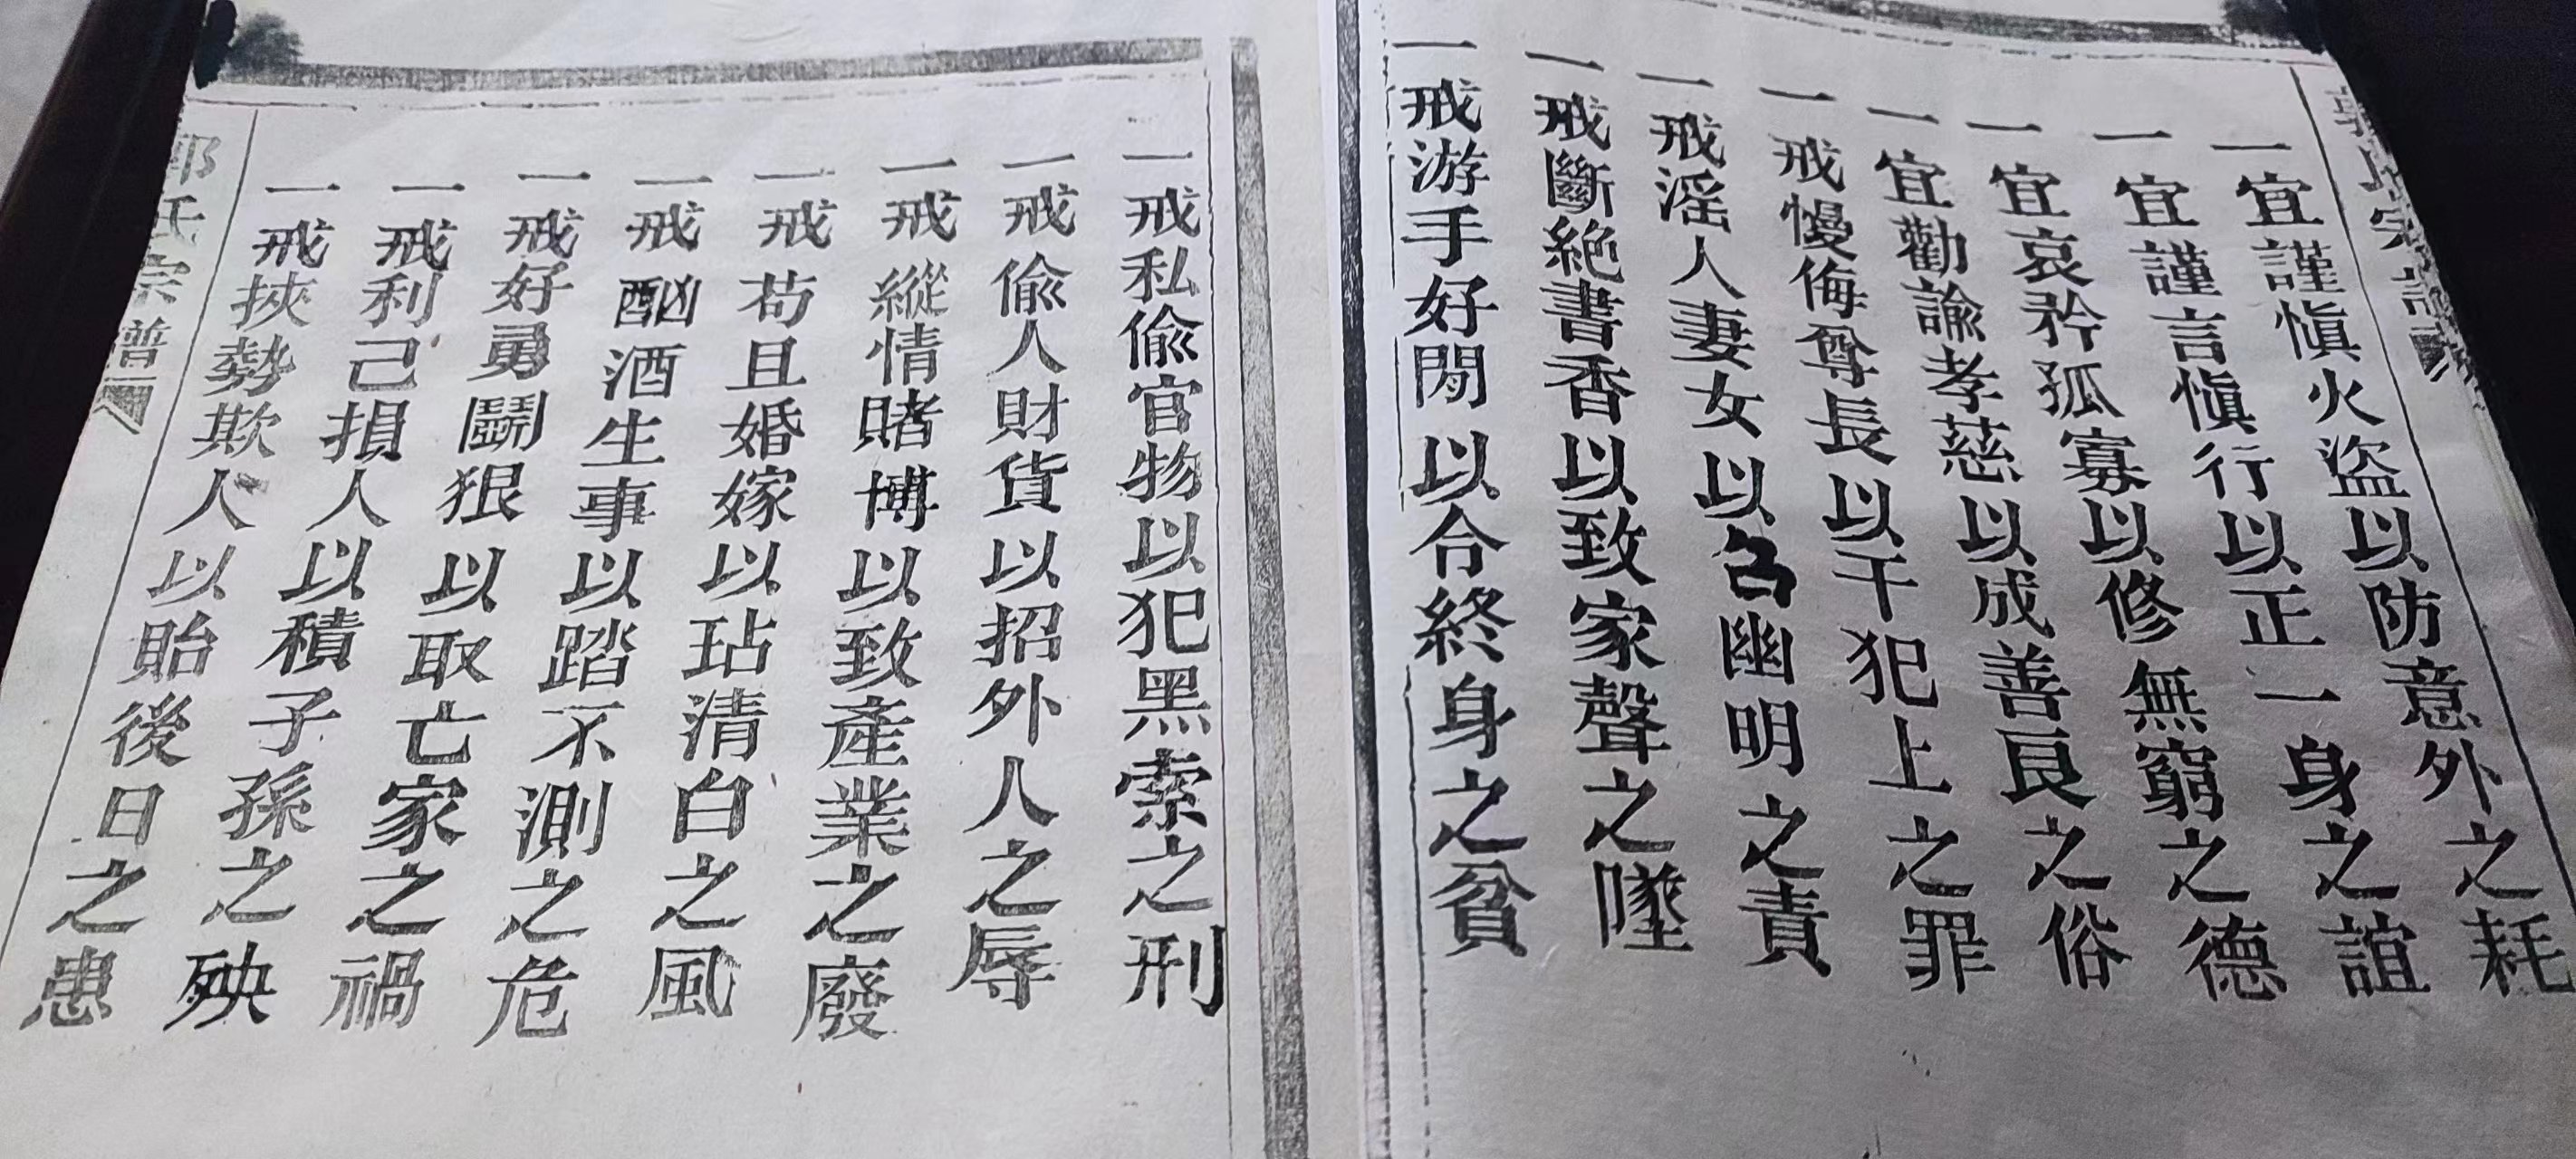 氏宗譜
一宜謹愼火盜以防意外之耗
一宜謹言愼行以正一身之誼
一宜哀矜孤寡以修無窮之德
一宜勸諭孝慈以成善良之俗
一戒慢侮尊長以干犯上之罪
一戒淫人妻女以召幽明之責
一戒斷絶書香以致家聲之墜
一戒游手好閒以合終身之貧
一戒私偷官物以犯黑索之刑
一戒偷人財貨以招外人之辱
一戒縱情賭博以致產業之廢
一戒苟且婚嫁以玷清白之風
一戒酗酒生事以踏不測之危
一戒好勇鬬狠以取亡家之禍
一戒利己損人以積子孫之殃
一戒挾勢欺人以貽後日之患
郭氏宗譜